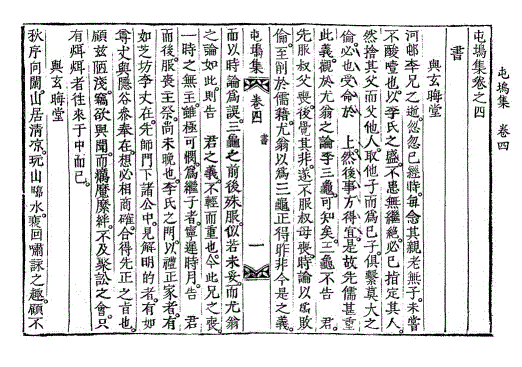 屯塢集 卷四
屯塢集卷之四
書
與玄晦堂
河邨李兄之逝忽忽已經時每念其親老無子未嘗
不酸噎也以李氏之盛不患無繼絶必已指定其人
然捨其父而父他人取他子而爲已子俱繫莫大之
倫必也受命於 上然後事方得宜是故先儒甚重
此義觀於尤翁之論李三龜可知矣三龜不告 君
先服叔父喪後覺其非遂不服叔母喪時論以爲敗
倫至削於儒籍尤翁以爲三龜正得昨非今是之義
屯塢集 卷四 書 一
而以時論爲誤三龜之前後殊服似若未妥而尤翁
之論如此則告 君之義不輕而重也今此兄之喪
一時之無主雖極可憫爲繼子者寧遲時月告 君
而後服喪主祭尚未晩也李氏之門以禮正家者有
如芝坊李丈在先師門下諸公中見解明的者有如
尊丈與隱谷叅奉在想必相商確合得先正之旨也
顧玆陋淺竊欲與聞而痼魔縻絆不及聚訟之會只
有烱烱者往來于中而已
與玄晦堂
秋序向闌山居淸凉玩山臨水裵回嘯詠之趣顧不